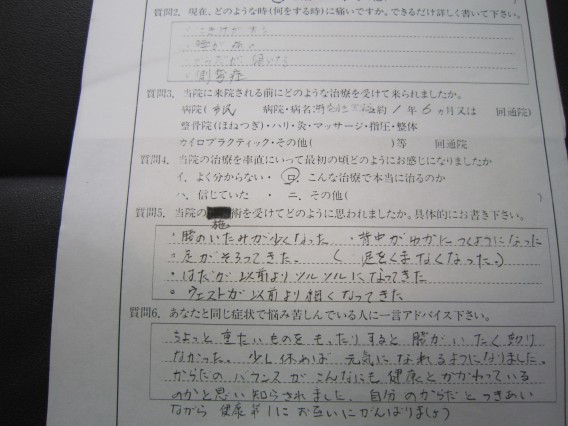 質問2. 現在、どのような時(何をする時)に痛いですか。できるだけ詳しく書いて下さい。
・腰が痛い
・側弯症
質問3. 当院に来院される前にどのような治療を受けて来られましたか。
病院( 市民 病院・病名 約 1 年 6 ヵ月又は 回通院)
整骨院(ほねつぎ)・ハリ・灸・マッサージ・指圧・整体
カイロプラクティック・その他( )等 回通院
質問4. 当院の治療を率直にいって最初の頃どのようにお感じになりましたか
イ. よく分からない・ ロ. こんな治療で本当に治るのか
ハ. 信じていた ・ ニ. その他( )
質問5. 当院の 術を受けてどのように思われましたか。具体的にお書き下さい。
施
・腰のいたみが少くなった ・背中がゆかにつくようになった
・足がそろってきた。 ( 足をくまなくなった。)
・はだが以前よりツルツルになってきた
・ウェストが以前より細くなってきた
質問6. あなたと同じ症状で悩み苦しんでいる人に一言アドバイス下さい。
ちょっと重たいものをもったりすると腰がいたく
なかった。少し休めば元気になれるようになりました。
からだのバランスがこんなにも健康とかかわっている
のかと思い知らされました。自分のからだとつきあい
ながら健康第1にお互いにがんばりましょう